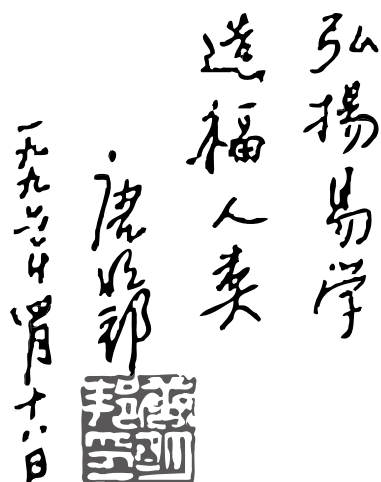 弘揚易学
造福人类
唐明邦
一九九六年四月十八日
唐明
邦印